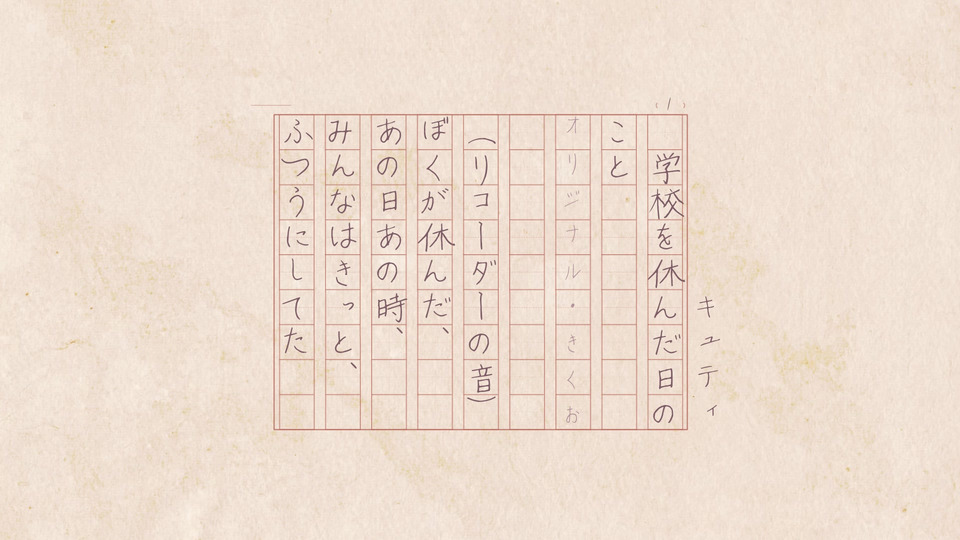 (1)
キュティ
学校を休んだ日の
こと
オリジナル・きくお
(リコーダーの音)
ぼくが休んだ、
あの日あの時、
みんなはきっと、
ふつうにしてた